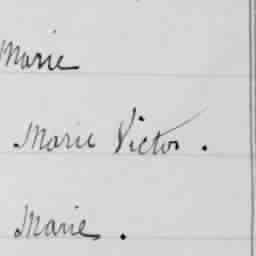 Marie
Marie Victor.
Marie.